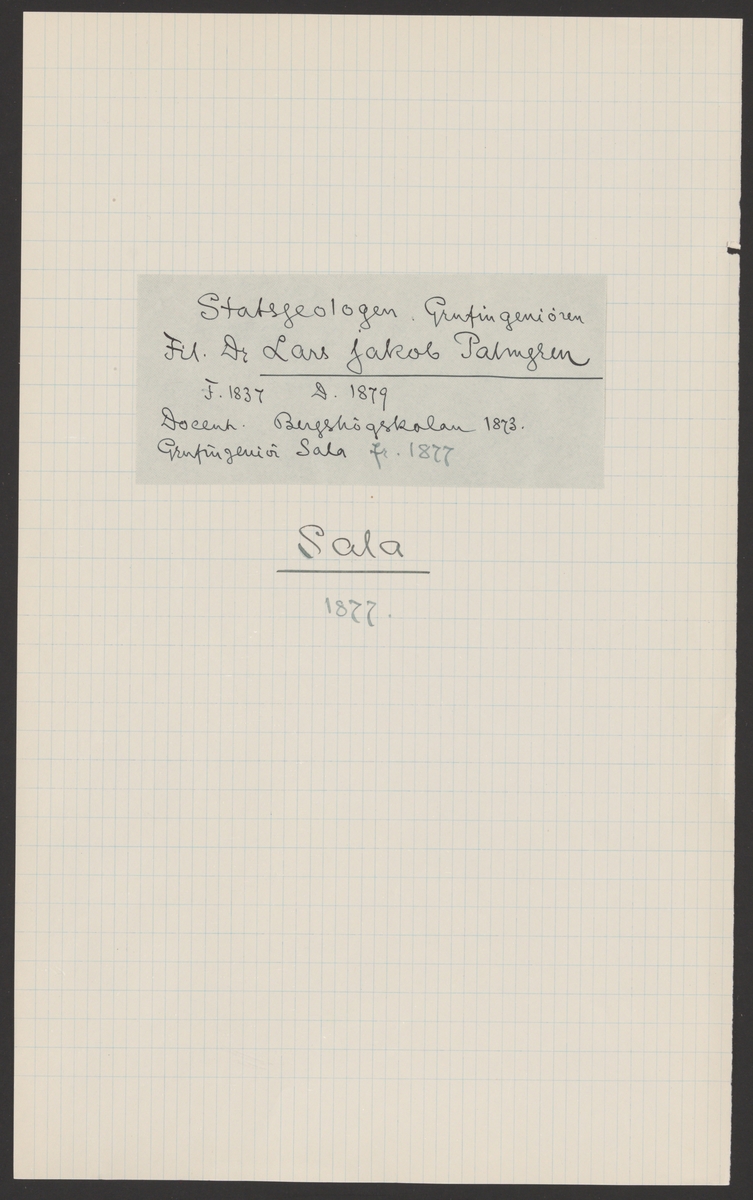 Statsgeologen. Grufingeniören
Fil. Dr Lars Jakob Palmgren
F. 1837 D. 1879
Docent. Bergshögskolan 1873.
Grufingeniör Sala fr. 1877
Sala
1877.